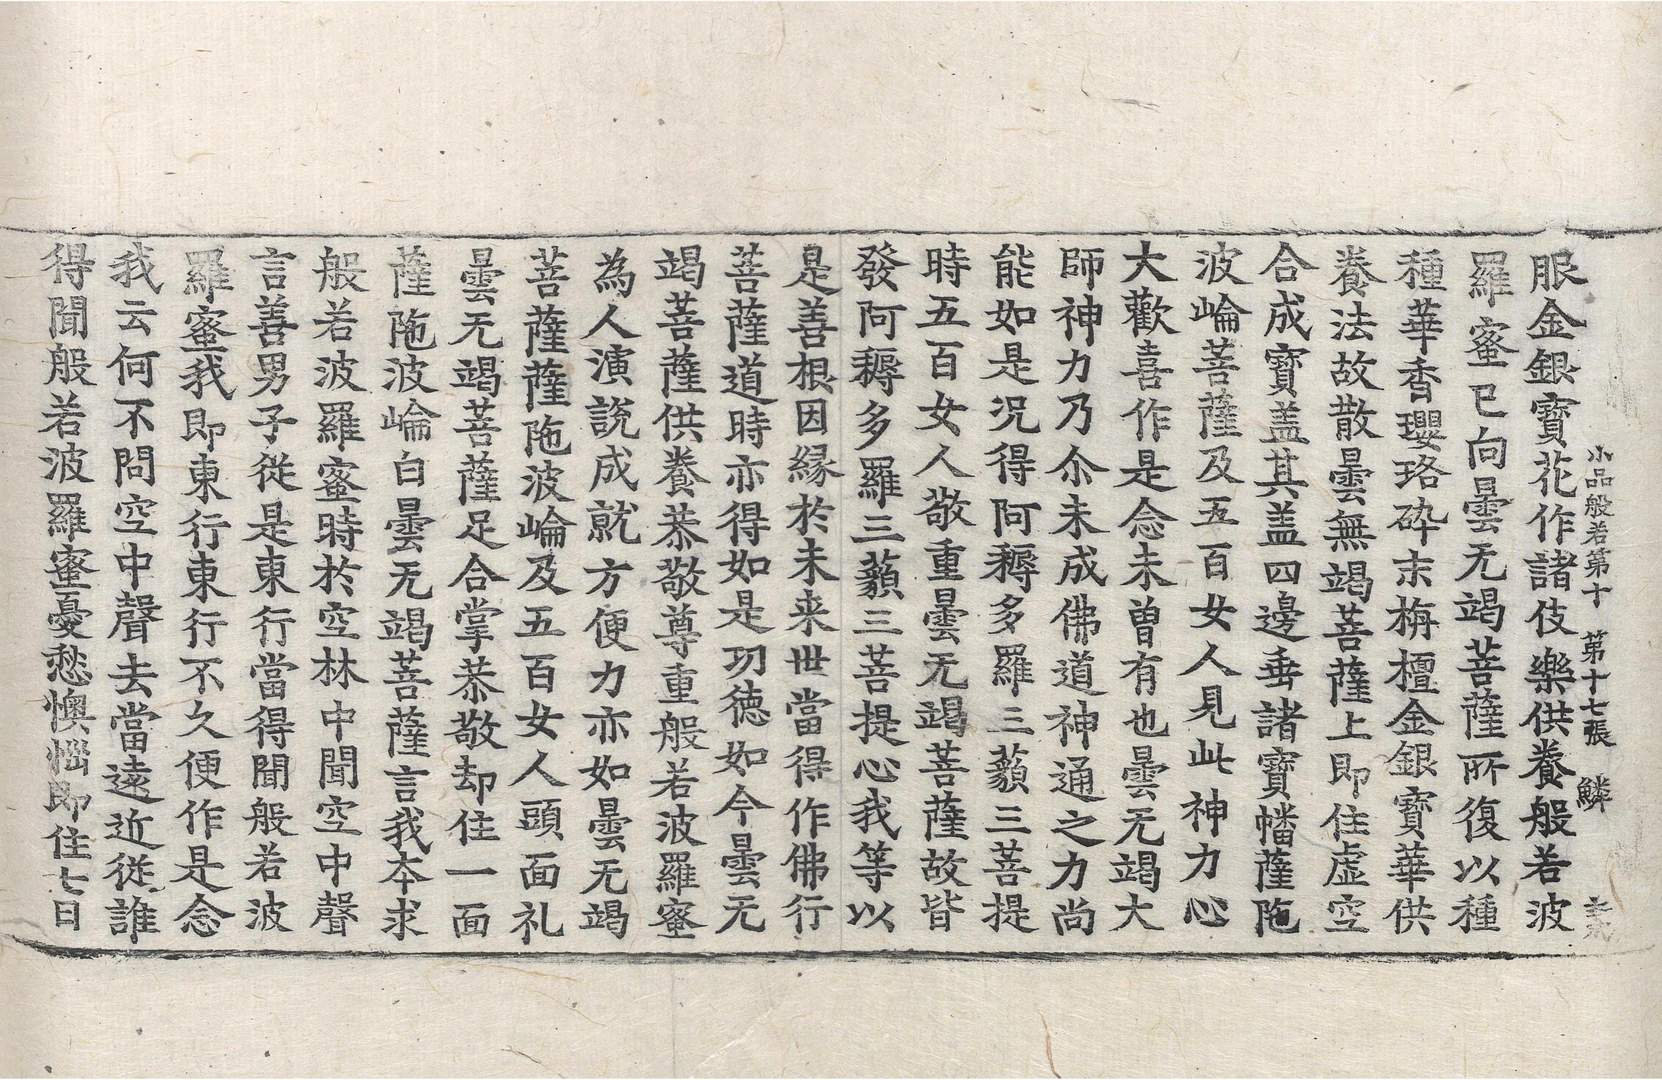 小品般若第十　第十七張　鱗
服金銀寶花作諸伎樂供養般若波
羅蜜已向曇无竭菩薩所復以種
種華香瓔珞碎末栴檀金銀寶華供
養法故散曇無竭菩薩上即住虛空
合成寶盖其盖四邊垂諸寶幡薩陁
波崘菩薩及五百女人見此神力心
大歡喜作是念未曾有也曇无竭大
師神力乃尒未成佛道神通之力尚
能如是况得阿耨多羅三藐三菩提
時五百女人敬重曇无竭菩薩故皆
發阿耨多羅三藐三菩提心我等以
是善根因緣於未来世當得作佛行
菩薩道時亦得如是功德如今曇无
竭菩薩供養恭敬尊重般若波羅蜜
為人演說成就方便力亦如曇无竭
菩薩薩陁波崘及五百女人頭面礼
曇无竭菩薩足合掌恭敬却住一面
薩陁波崘白曇无竭菩薩言我夲求
般若波羅蜜時於空林中聞空中聲
言善男子從是東行當得聞般若波
羅蜜我即東行東行不久便作是念
我云何不問空中聲去當遠近從誰
得聞般若波羅蜜憂愁懊惱即住七日